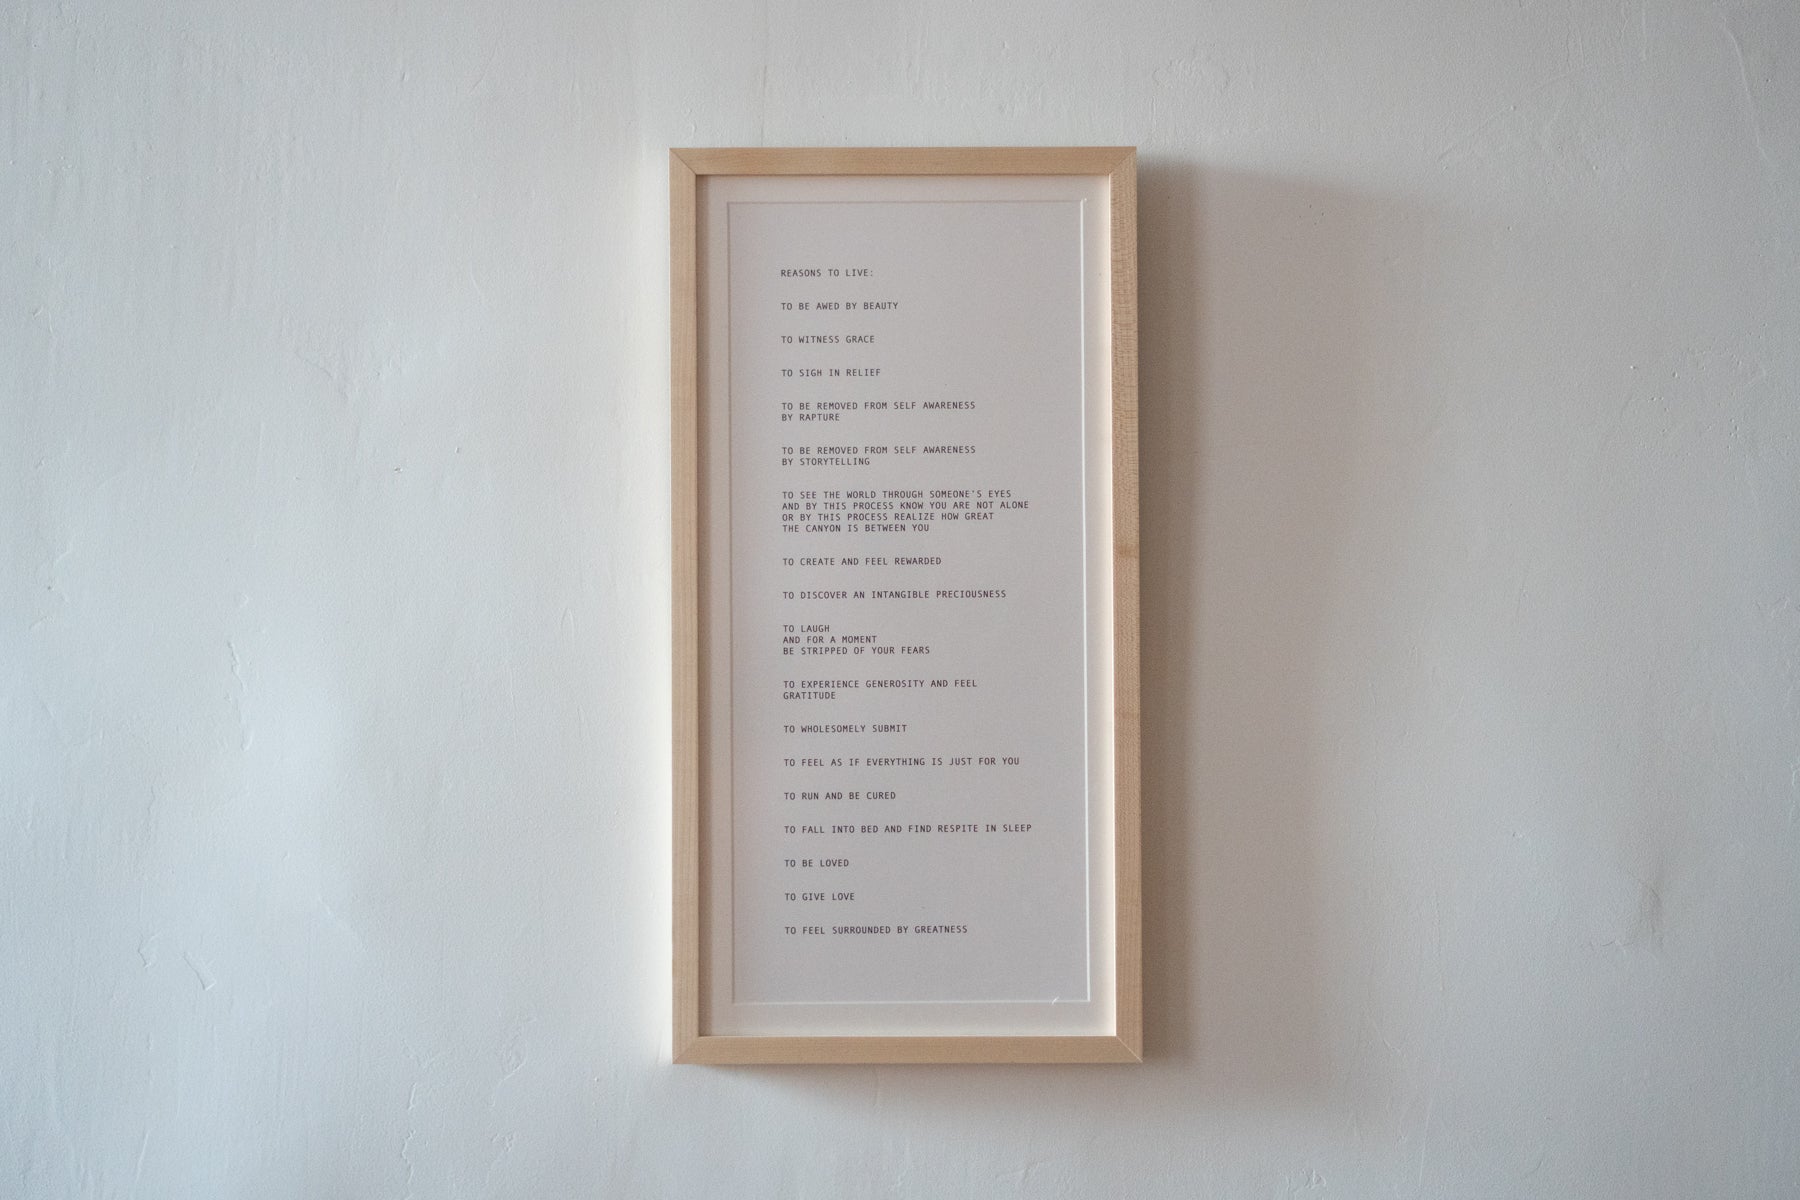 REASONS TO LIVE:
TO BE AWED BY BEAUTY
TO WITNESS GRACE
TO SIGH IN RELIEF
TO BE REMOVED FROM SELF AWARENESS
BY RAPTURE
TO BE REMOVED FROM SELF AWARENESS
BY STORYTELLING
TO SEE THE WORLD THROUGH SOMEONE'S EYES
AND BY THIS PROCESS KNOW YOU ARE NOT ALONE
OR BY THIS PROCESS REALIZE HOW GREAT
THE CANYON IS BETWEEN YOU
TO CREATE AND FEEL REWARDED
TO DISCOVER AN INTANGIBLE PRECIOUSNESS
TO LAUGH
AND FOR A MOMENT
BE STRIPPED OF YOUR FEARS
TO EXPERIENCE GENEROSITY AND FEEL
GRATITUDE
TO WHOLESOMELY SUBMIT
TO FEEL AS IF EVERYTHING IS JUST FOR YOU
TO RUN AND BE CURED
TO FALL INTO BED AND FIND RESPITE IN SLEEP
TO BE LOVED
TO GIVE LOVE
TO FEEL SURROUNDED BY GREATNESS